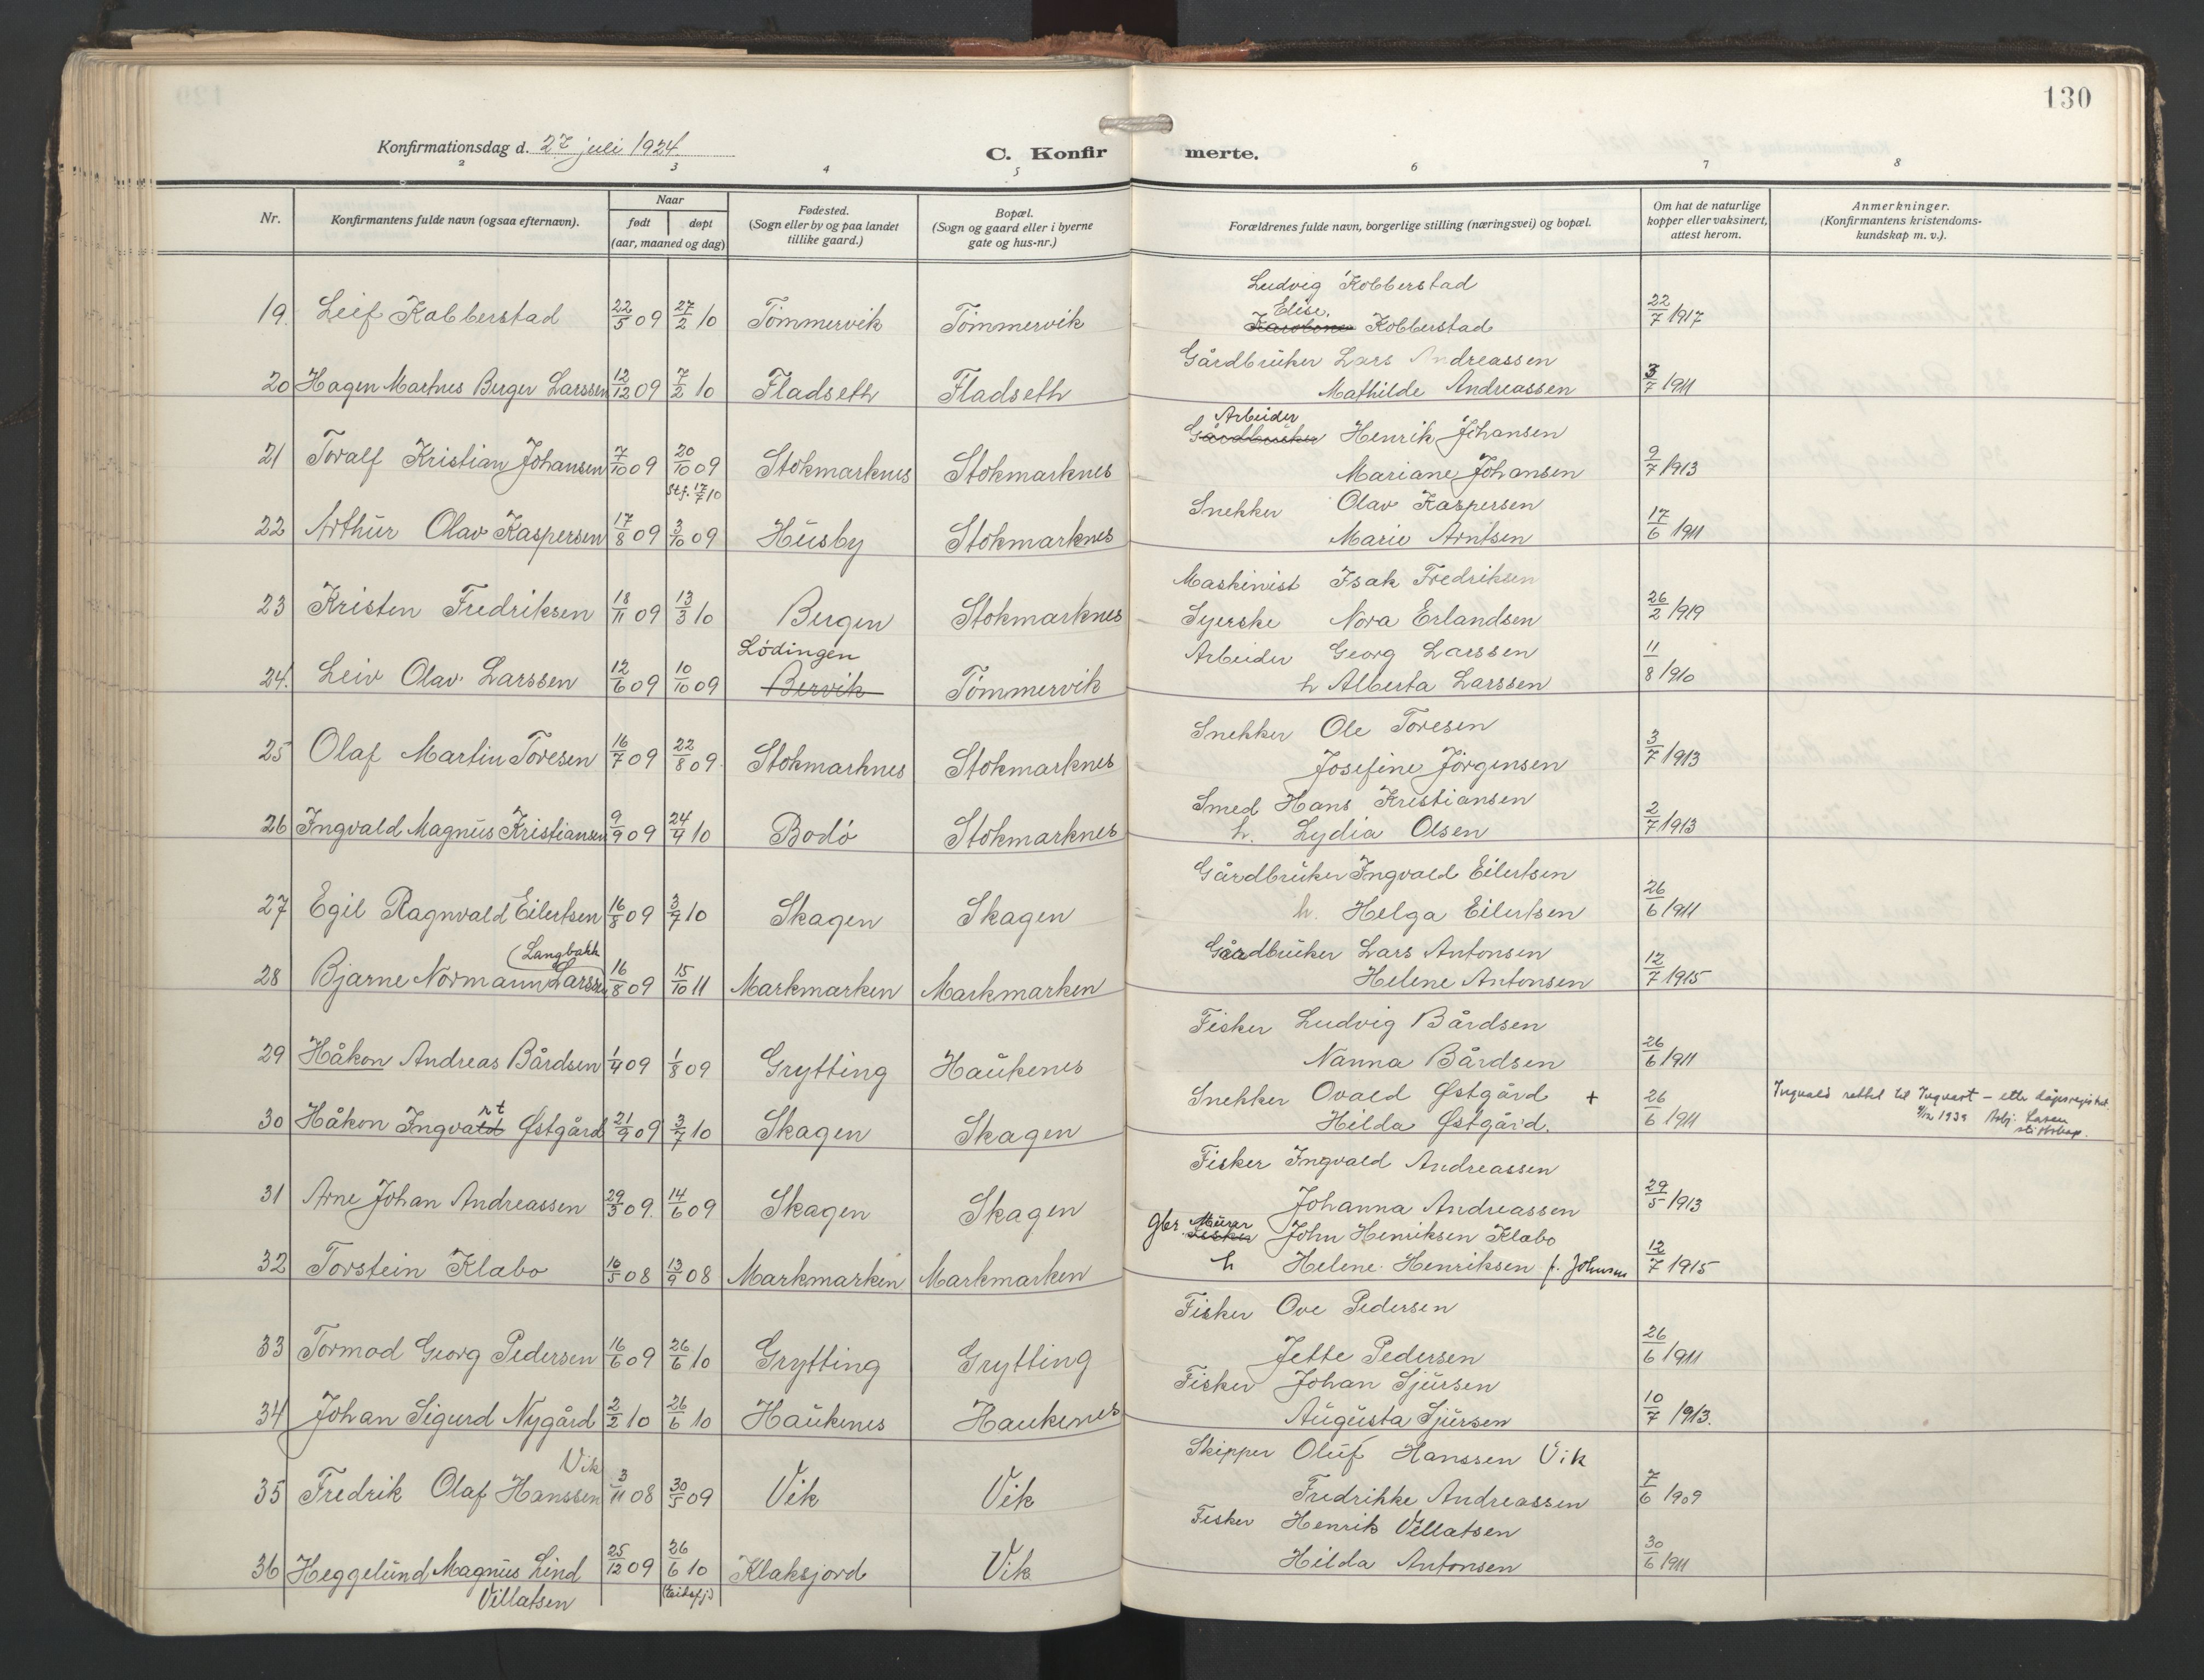 130
Konfirmationsdag d. 27 juli 1924.
C. Konfirmerte.
2 3 4 5 6 7 8
Nr.
Konfirmantens fulde navn (ogsaa efternavn).
Naar
født døpt
(aar, maaned og dag)
Fødested.
(Sogn eller by og paa landet
tillike gaard.)
Bopæl.
(Sogn og gaard eller i byerne
gate og hus-nr.)
Forældrenes fulde navn, borgerlige stilling (næringsvei) og bopæl.
Om hat de naturlige
kopper eller vaksinert,
attest herom.
Anmerkninger.
(Konfirmantens kristendoms-
kundskap m. v.).
Ludvig Kobberstad
Elise.
19. Leif Kobberstad 22/5 09 27/2 10 Tömmervik Tömmervik Kobberstad 22/7 1917
Gårdbrüker Lars Andreassen
20 Hagen Martnus Berger Larssen 12/12 09 7/2 10 Fladseth Fladseth Mathilde Andreassen 3/7 1911
Arbeider
Gårdbrüker Henrik Johansen
21 Toralf Kristian Johansen 7/10 09 20/10 09 Stokmarknes Stokmarknes Mariane Johansen 9/7 1913
stf. 17/7 10
Snekker Olav Kaspersen
22 Arthür Olav Kaspersen 17/8 09 3/10 09 Hüsby Stokmarknes Marie Arntsen 17/6 1911
Maskinist Isak Fredriksen
23 Kristen Fredriksen 18/11 09 13/3 10 Bergen Stokmarknes Syerske Nora Erlandsen 26/2 1919
Lødingen
Arbeider Georg Larssen
24. Leiv Olav Larssen 12/6 09 10/10 09 Bervik Tömmervik h Alberta Larssen 11/8 1910
Snekker Ole Toresen
25 Olaf Martin Toresen 16/7 09 22/8 09. Stokmarknes Stokmarknes Josefine Jörgensen 3/7 1913
Smed Hans Kristiansen
26 Ingvald Magnüs Kristiansen 9/9 09 24/4 10 Bodö Stokmarknes h. Lydia Olsen 2/7 1913
Gårdbrüker Ingvald Eilertsen
27 Egil Ragnvald Eilertsen 16/8 09 3/7 10 Skagen Skagen h. Helga Eilertsen 26/6 1911
(Langbakk
Gaardbrüker Lars Antonsen
28 Bjarne Normann Larssen 16/8 09 15/10 11 Markmarken Markmarken Helene Antonsen 12/7 1915
Fisker Ludvig Bårdsen
29 Håkon Andreas Bårdsen 1/4 09 1/8 09 Grytting Haükenes Nanna Bårdsen 26/6 1911
Snekker Ovald Østgård +
Ingvald rettet til Ingvart – etter dåpsregistret.
rt
30 Håkon Ingvald Østgård 21/9 09 3/7 10 Skagen Skagen Hilda Østgård. 26/6 1911
1939
Fisker Ingvald Andreassen
31 Arne Johan Andreassen 29/3 09. 14/6 09 Skagen Skagen Johanna Andreassen 29/5 1913
Gbr. Mürer
Fisker John Henriksen Klabo
32 Torstein Klabo 16/5 08 13/9 08 Markmarken Markmarken h Helene Henriksen f. Johnsen 12/7 1915
Fisker Ove Pedersen
33 Tormod Georg Pedersen 16/6 09 26/6 10 Grytting Grytting Jette Pedersen 26/6 1911
Fisker Johan Sjürsen
34 Johan Sigurd Nygård 2/2 10 26/6 10 Haükenes Haukenes Augüsta Sjürsen 10/7 1913.
Vik
Skipper Olüf Hanssen Vik
35 Fredrik Olaf Hanssen 3/11 08 30/5 09 Vik Vik Fredrikke Andreassen 7/6 1909
Fisker Henrik Villatsen
36 Heggelünd Magnüs Lind 25/12 09 26/6 10 Klaksjord Vik Hilda Antonsen 30/6 1911
Villatsen